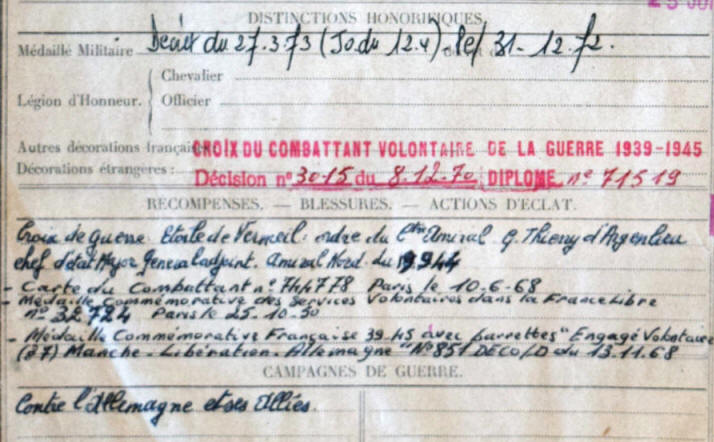 25 JUI
DISTINCTIONS HONORIFIQUES.
Médaille Militaire Décret du 27.3.73 (Jo du 12.4) le/ 31-12.72.
Chevalier
Légion d'Honneur. Officier
Autres décorations françai CROIX DU COMBATTANT VOLONTAIRE DE LA GUERRE 1939-1945
Décorations étrangères: Décision n° 3015 du 8.12.70 DIPLOME n° 71519
RECOMPENSES. — BLESSURES. — ACTIONS D'ECLAT.
Croix de guerre Etoile de Vermeil: ordre du Ctre Amiral G. Thierry d'Argenlieu
chef d'état Major General adjoint. Amiral Nord. du 1944
- Carte du Combattant n° 744778 Paris le 10-6-68
- Médaille Commémorative des Services Volontaires dans la France Libre
n° 32.724 Paris le 25-10-50
- Médaille Commémorative Française 39-45 avec barrettes "Engagé Volontaire
(27) Manche. Libération. Allemagne" N° 851 DECO/D du 13.11.68
CAMPAGNES DE GUERRE.
Contre l'Allemagne et ses Alliés.